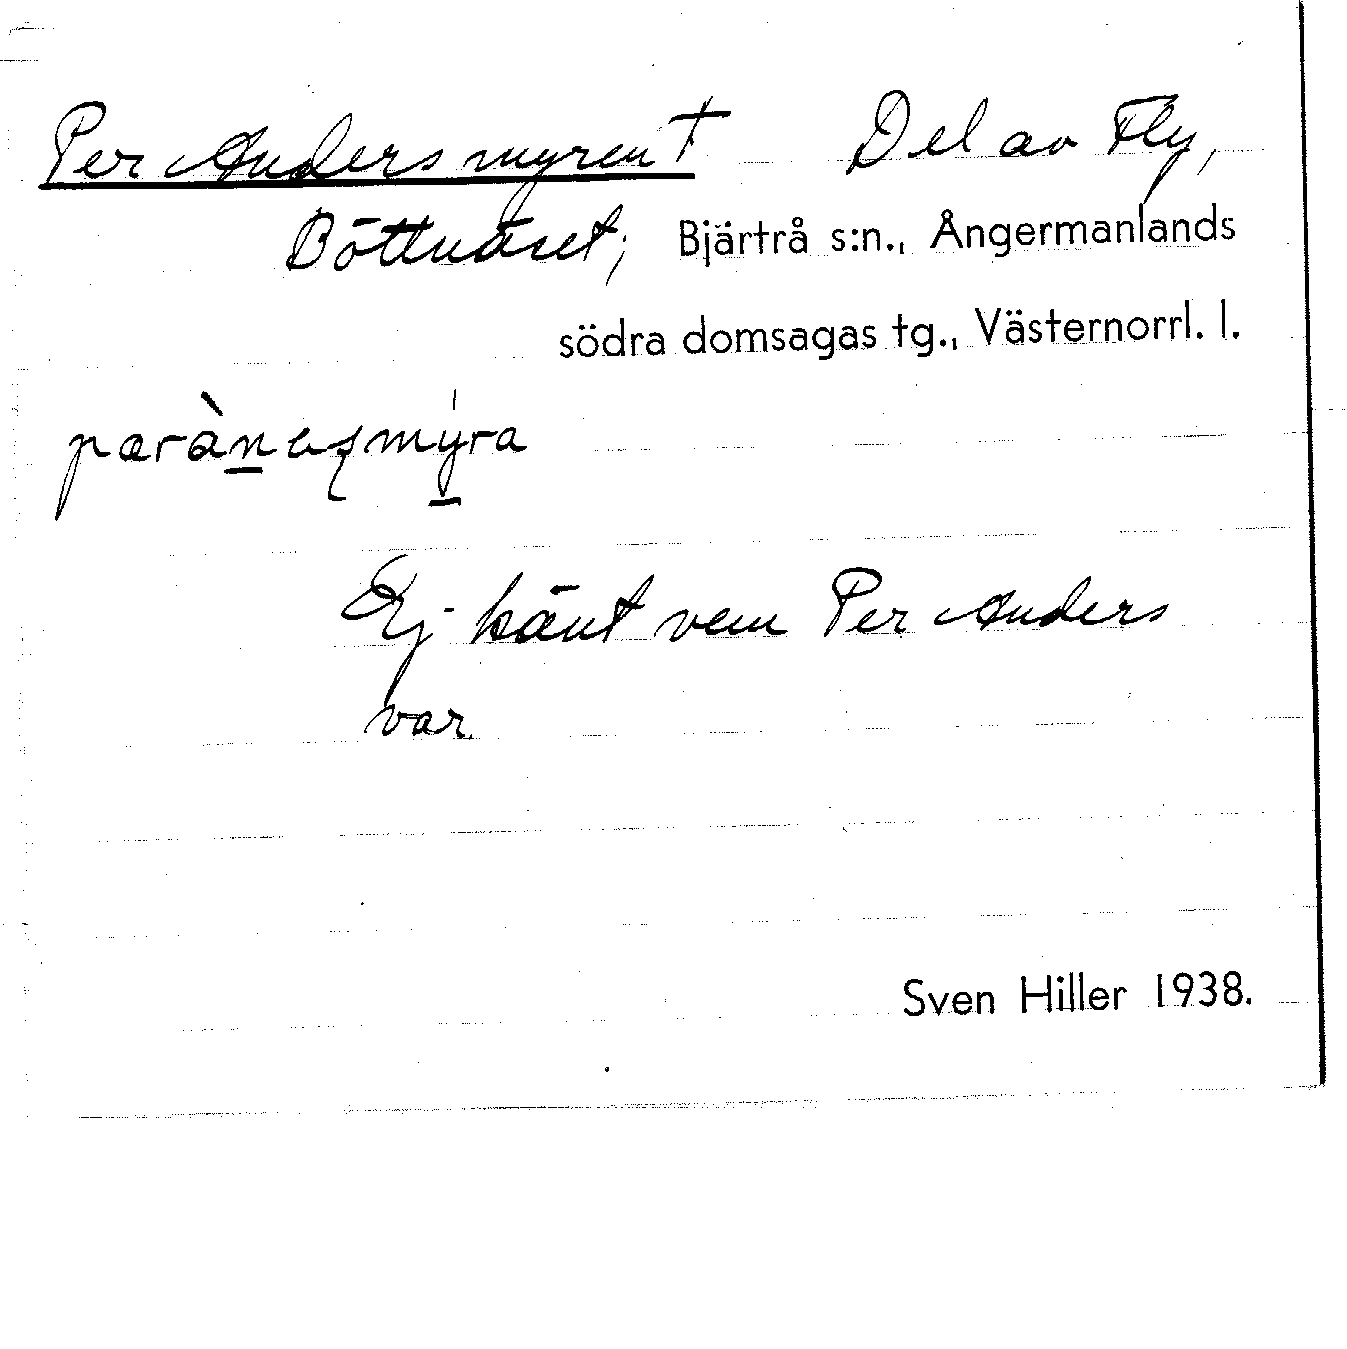 Per Andersmyren † Del av Fly,
Böttnäset, Bjärtrå s:n., Ångermanlands
södra domsagas tg., Västernorrl. l.
Ej känt vem Per Anders
var.
Sven Hiller 1938.